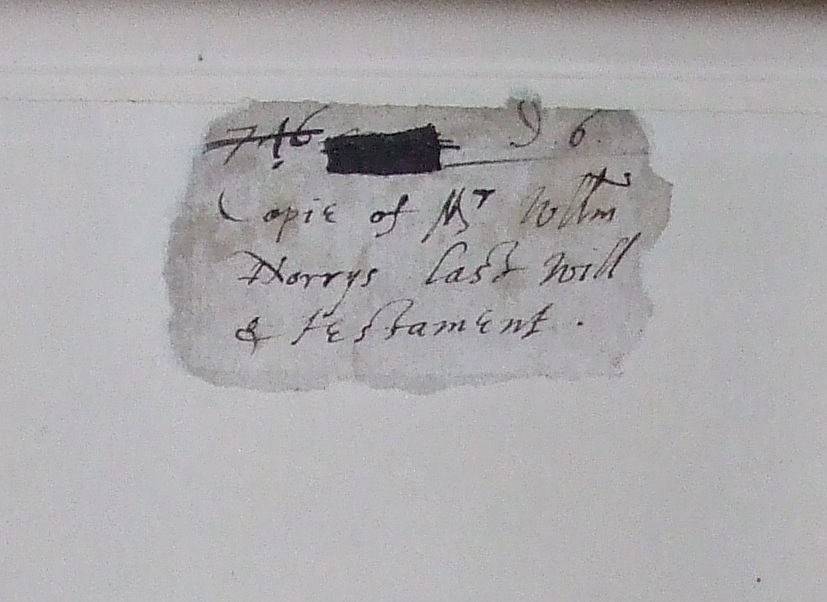 746 D 6.
Copie of Mr Willm
Norrys last will
& testament .